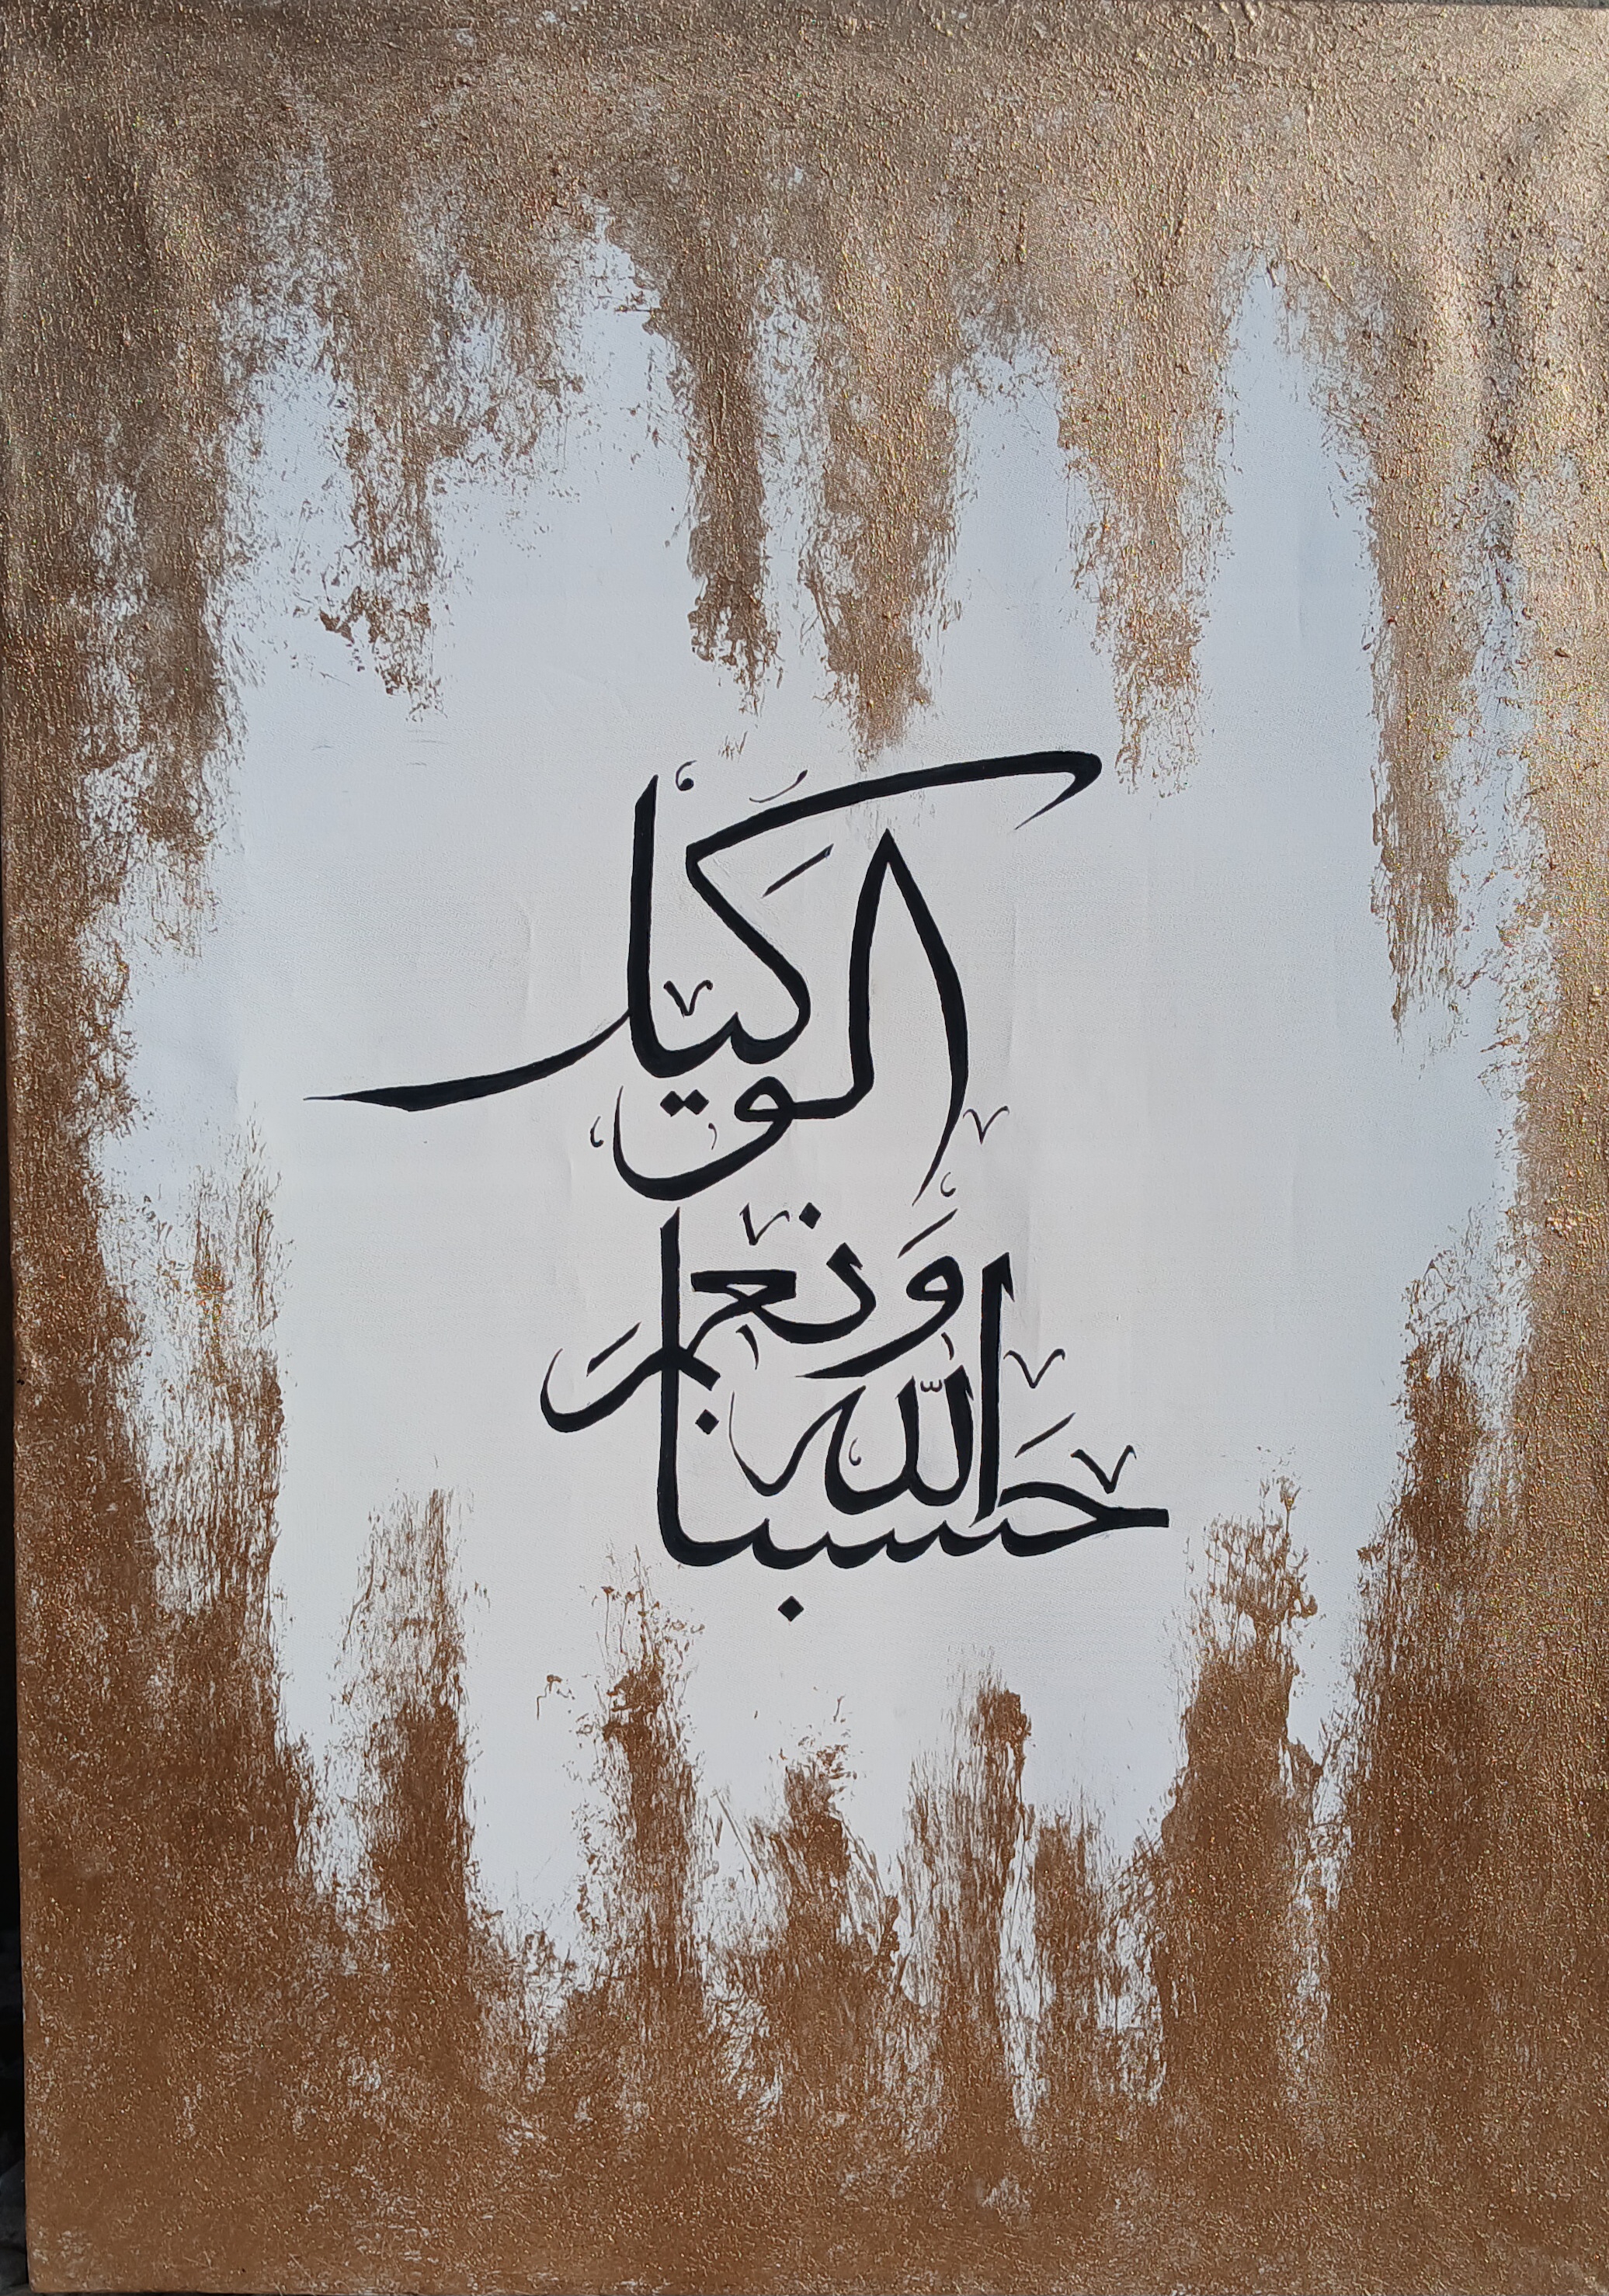 حَسبنا الله
وَنعمَ
الوكَيل